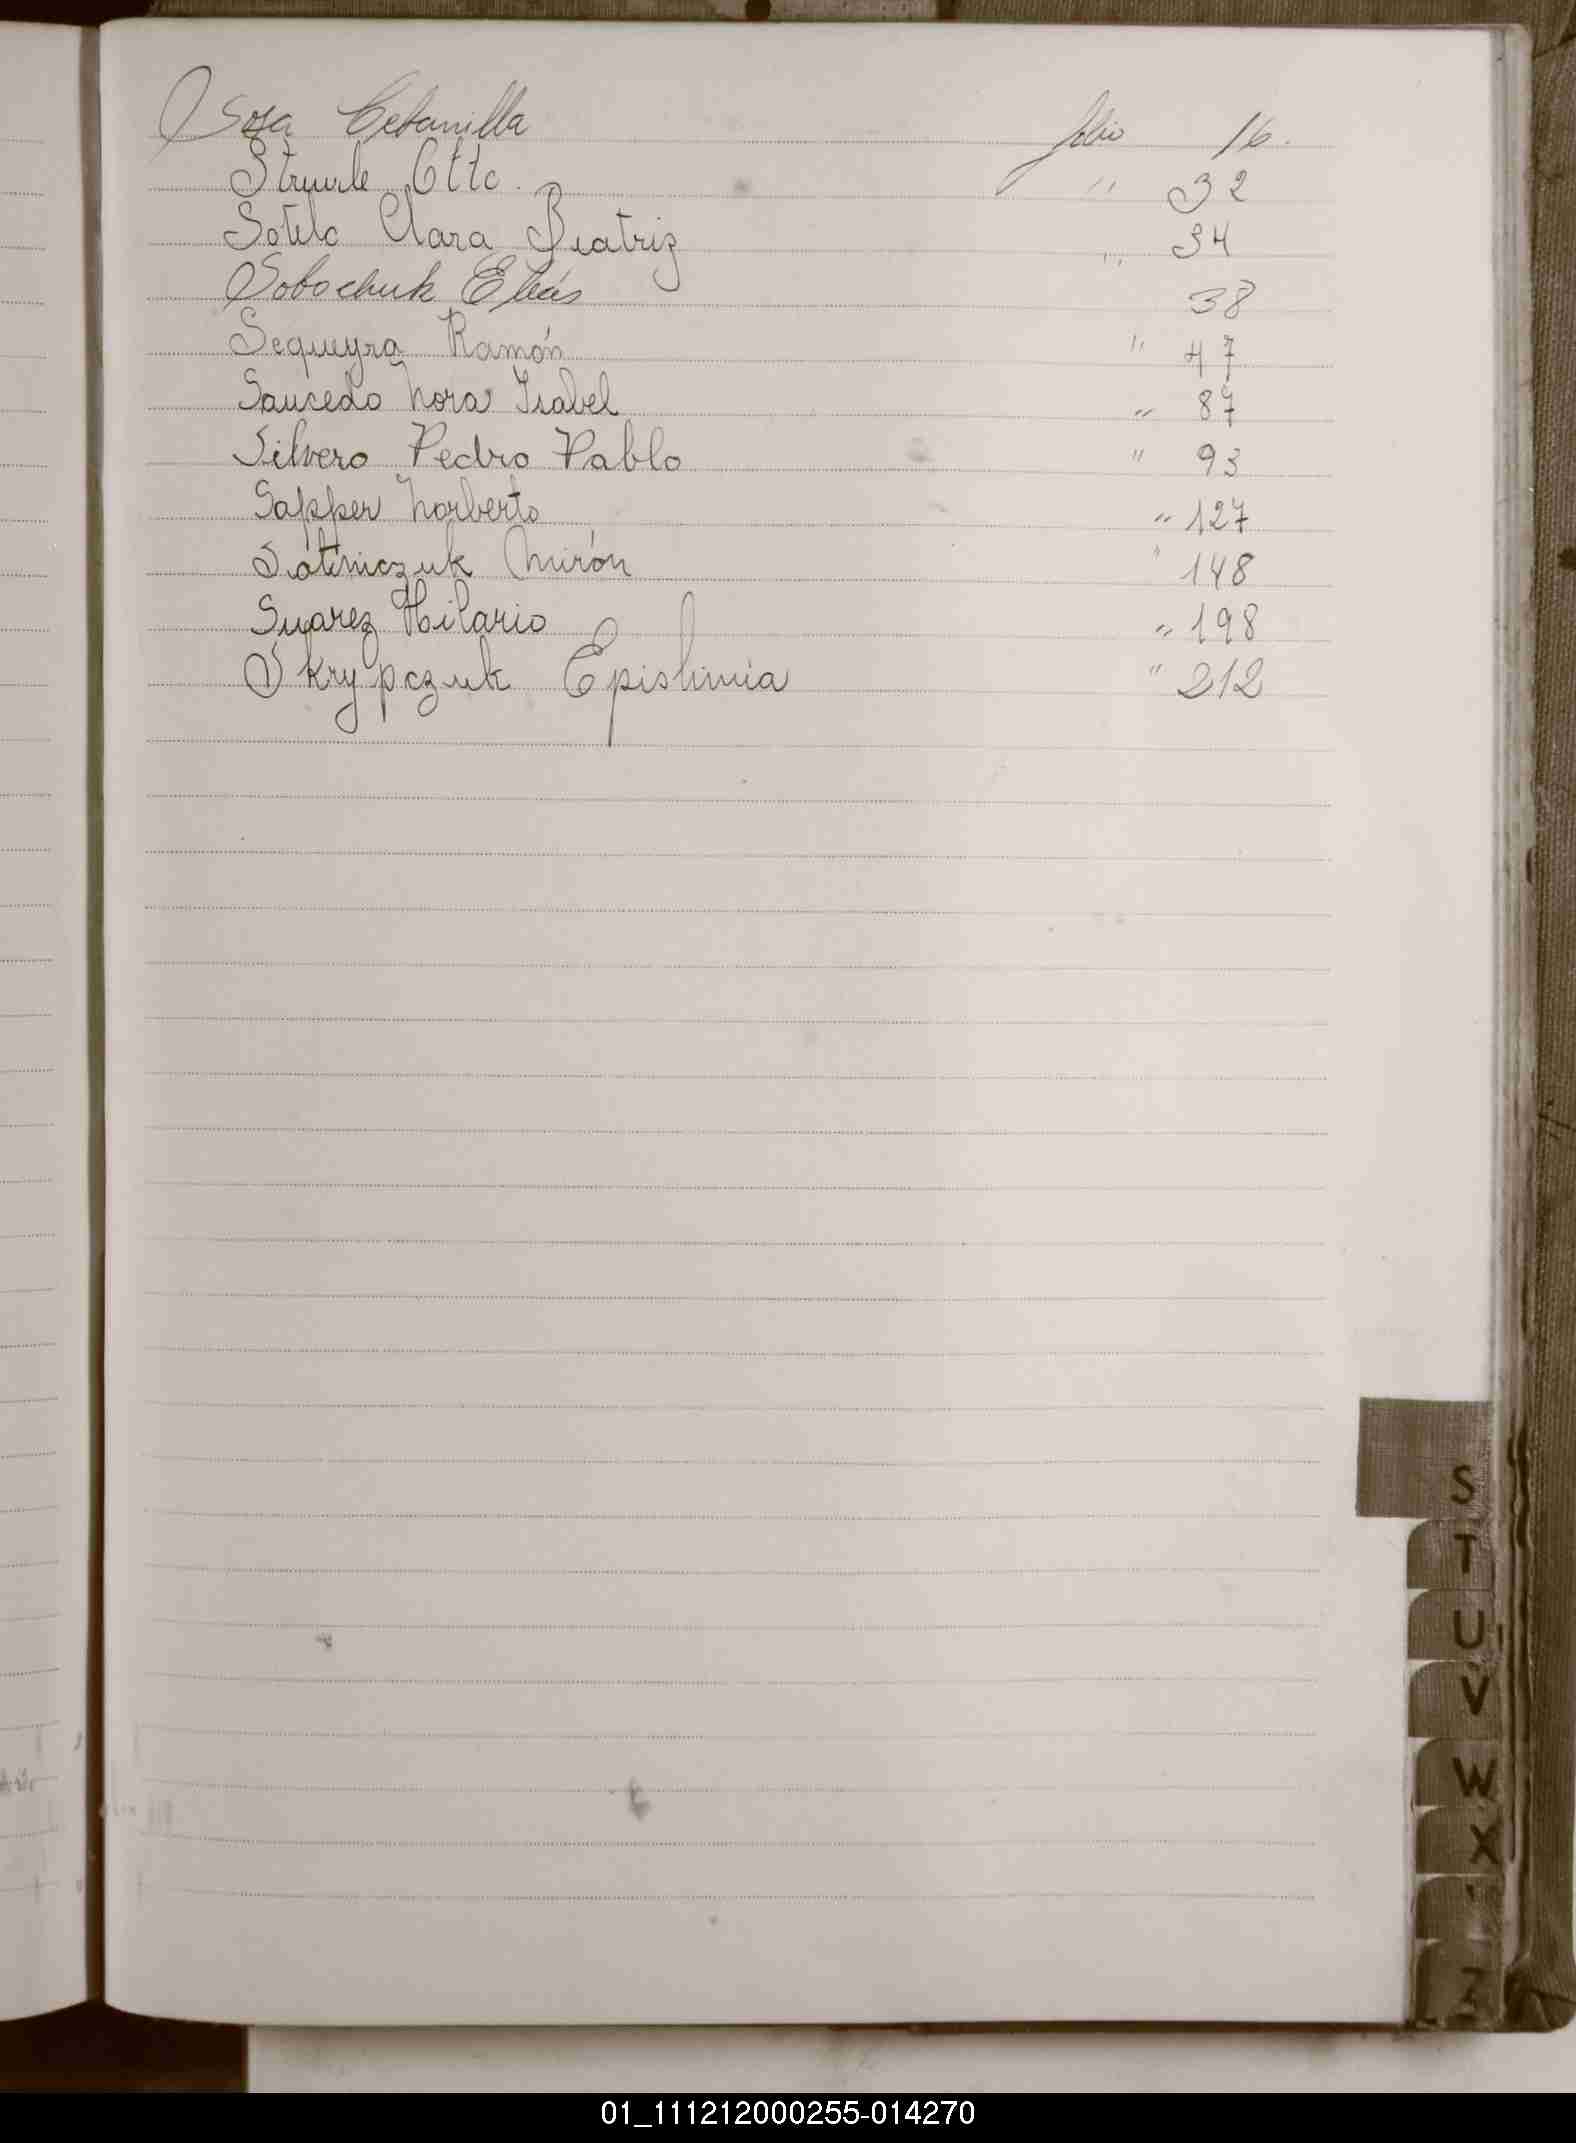 Sosa Cetanilla folio 16.
Struwle Otto. " 32
Sotelo Clara Beatriz " 34
Sobochuk Elías 38
Sequeyra Ramón " 47
Saucedo Nora Isabel " 87
Silvero Pedro Pablo " 93
Sapper Norberto " 127
Mirón " 148
Suarez Hilario " 198
Skrypczuk Epishimia " 212
S
T
U
V
W
X
Z
01_111212000255-014270